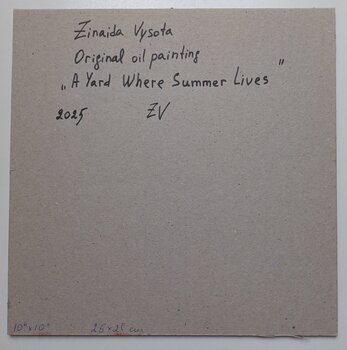 Zinaida Vysota
Original oil painting
„A Yard Where Summer Lives"
2025 ZV
10"x10" 25×25 cm